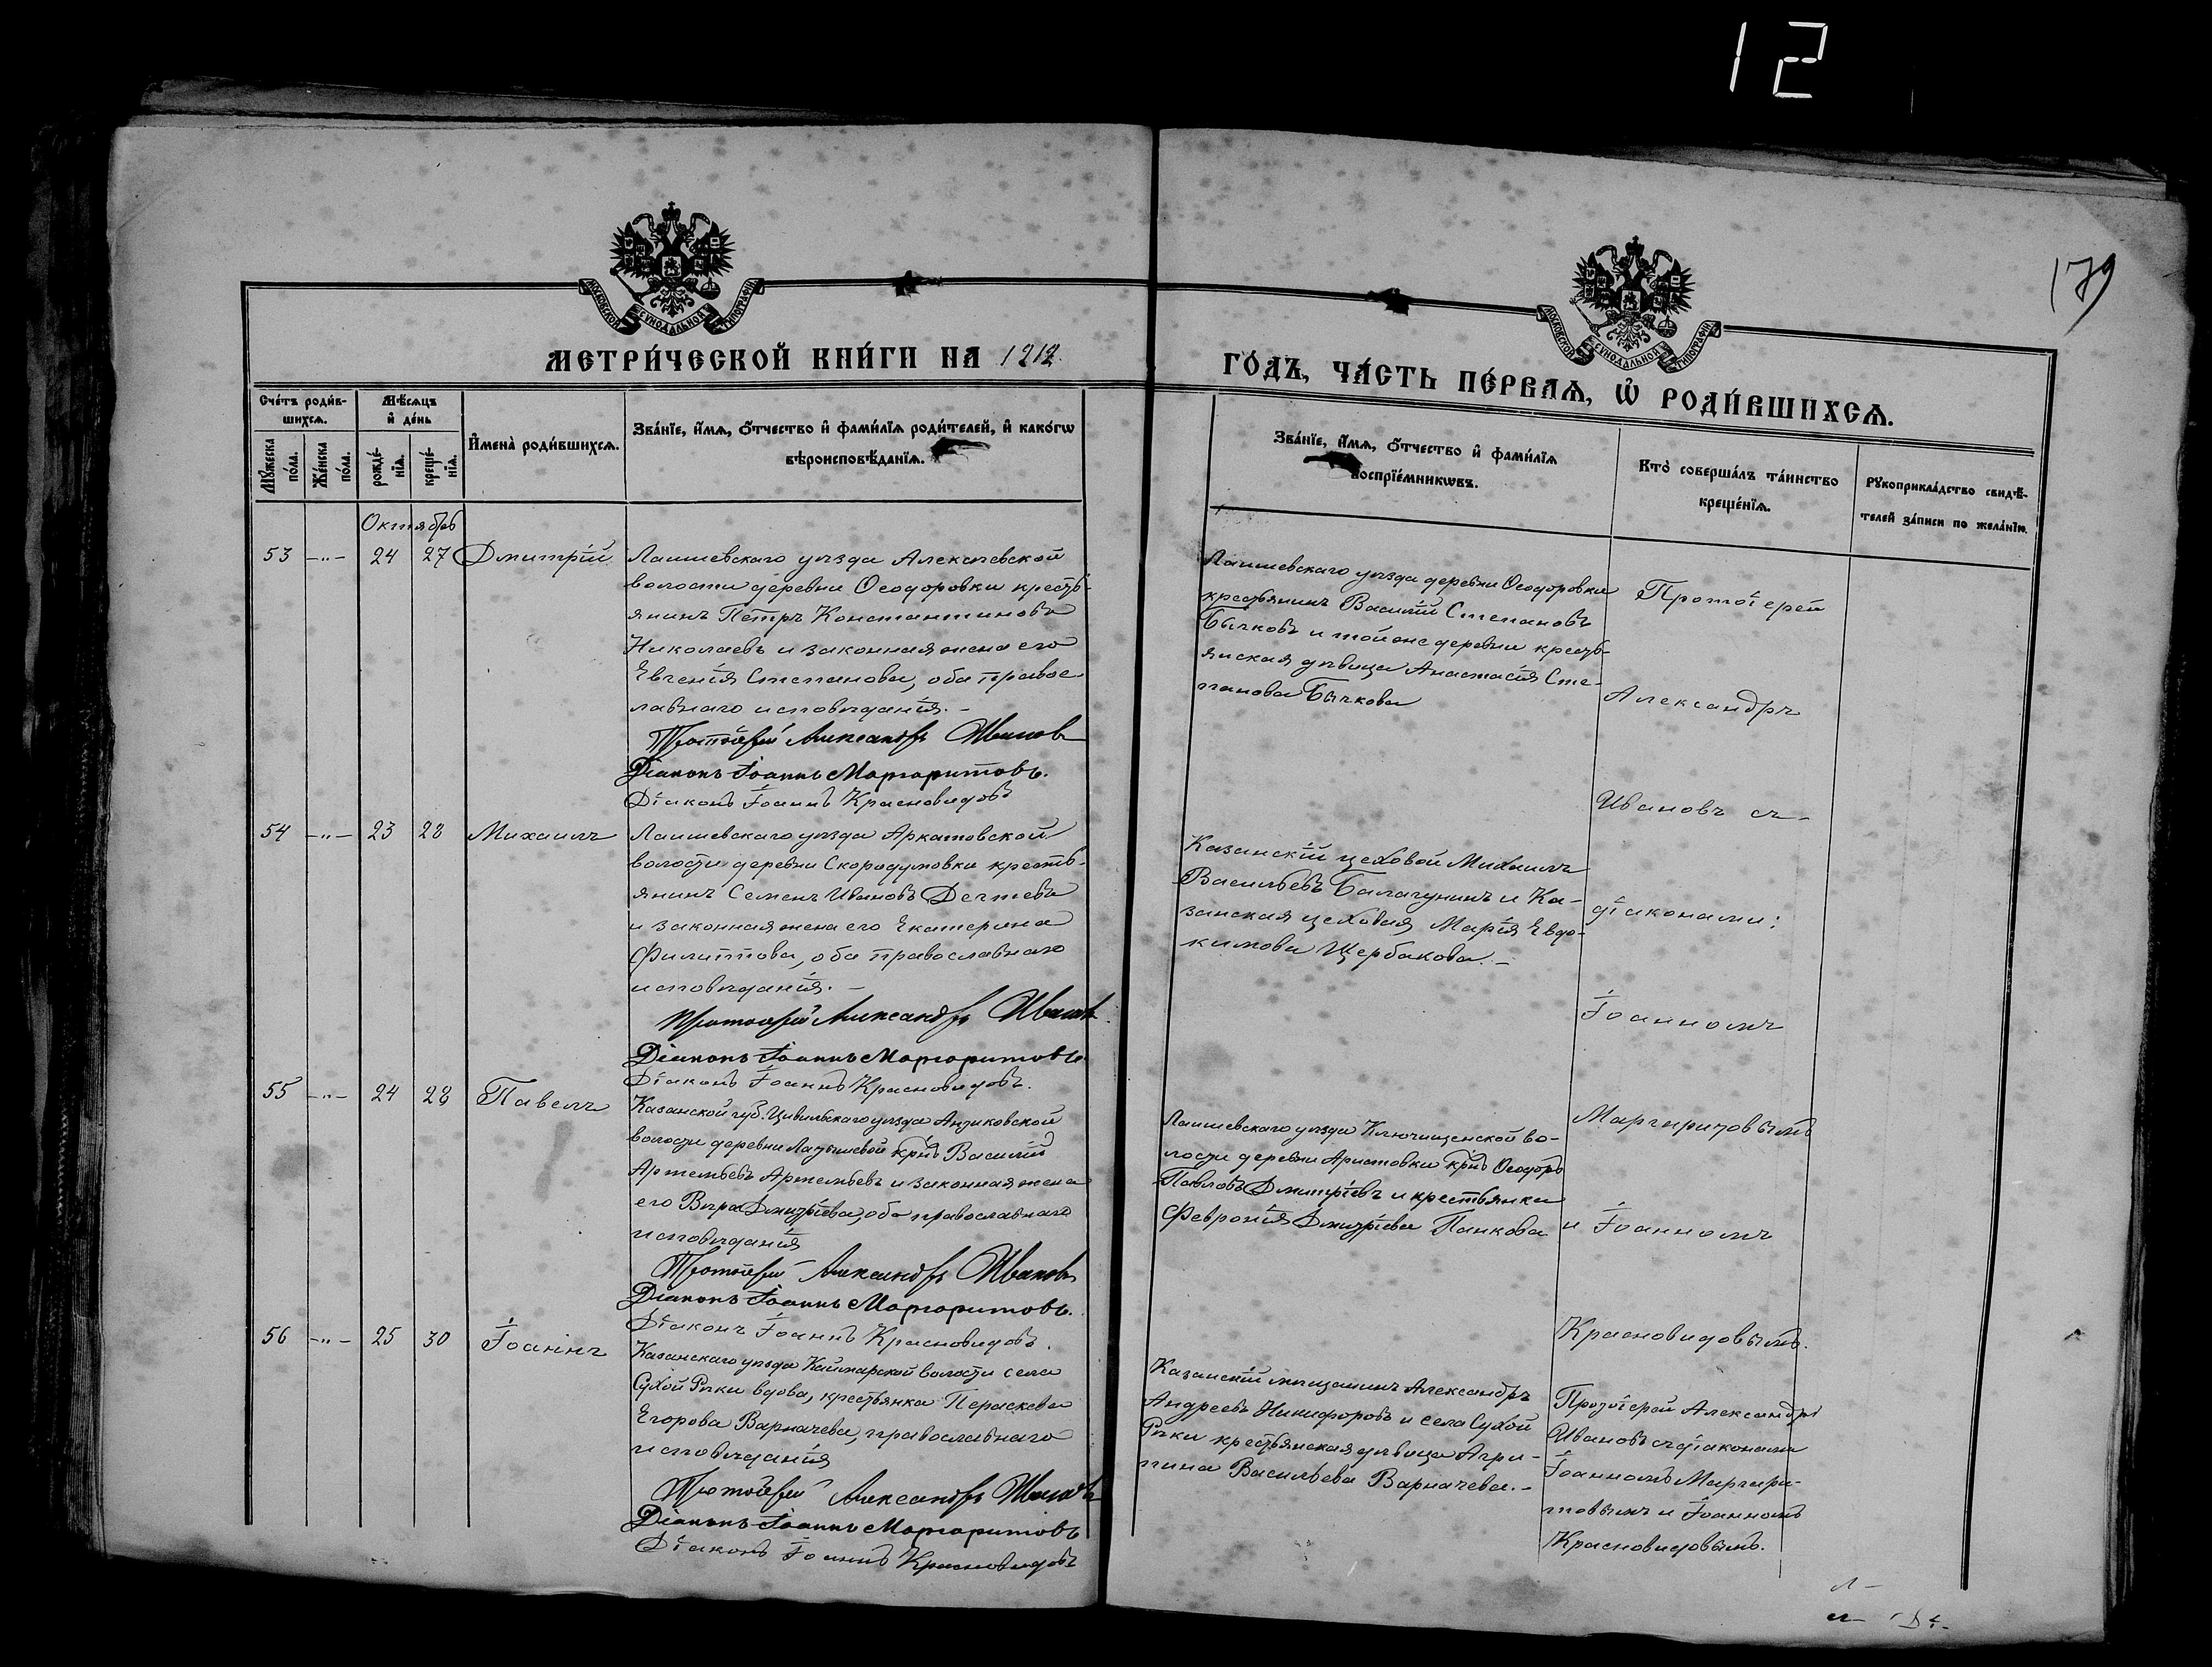 12
179
МОСКОВСКОЙ СѴНОДАЛЬНОЙ ТИПОГРАФІИ
МОСКОВСКОЙ СѴНОДАЛЬНОЙ ТИПОГРАФІИ
МЕТРИ́ЧЕСКОЙ КНИ́ГИ НА 1912
ГО́ДЪ, ЧА́СТЬ ПЕ́РВАѦ, Ѡ҆ РОДИ́ВШИХСѦ.
Сче́тъ роди́в-
шихсѧ.
Мꙋ́жеска
по́ла.
Же́нска
по́ла.
Мѣ́сѧцъ
и҆ де́нь
рожде́-
нїѧ.
креще́-
нїѧ.
И҆мена̀ роди́вшихсѧ.
Зва́нїе, и҆́мѧ, ѻ҆́тчество и҆ фами́лїѧ роди́телей, и҆ како́гѡ
вѣроисповѣ́данїѧ.
Зва́нїе, и҆́мѧ, ѻ҆́тчество и҆ фами́лїѧ
воспрїе́мникѡвъ.
Кто̀ соверша́лъ та́инство
креще́нїѧ.
Рꙋкоприкла́дство свидѣ́-
телей за́писи по жела́нїю.
Октябрь
53 -„- 24 27 Дмитрій
Лаишевскаго уѣзда Алексѣевской
волости деревни Ѳеодоровки кресть-
янинъ Петръ Константиновъ
Николаевъ и законная жена его
Евгенія Степанова, оба право-
славнаго исповѣданія. -
Протоіерей Александръ Ивановъ
Діаконъ Іоаннъ Маргаритовъ.
Діаконъ Іоаннъ Красновидовъ
Лаишевскаго уѣзда деревни Ѳеодоровки
крестьянинъ Василій Степановъ
Бычковъ и той же деревни кресть-
янская дѣвица Анастасія Сте-
панова Бычкова
Протоіерей
Александръ
Ивановъ съ
діаконами:
Іоанномъ
Маргаритовымъ
и Іоанномъ
Красновидовымъ.
54 -„- 23 28 Михаилъ
Лаишевскаго уѣзда Аркатовской
волости деревни Скородумовки кресть-
янинъ Семенъ Ивановъ
и законная жена его Екатерина
Филиппова, оба православнаго
исповѣданія. -
Протоіерей Александръ Ивановъ
Діаконъ Іоаннъ Маргаритовъ
Діаконъ Іоаннъ Красновидовъ.
Казанскій цеховой Михаилъ
Васильевъ Балагунинъ и Ка-
занская цеховая Марія Евдо-
кимова Щербакова. -
55 -„- 24 28 Павелъ
Казанской губ. Цивильскаго уѣзда
волости деревни Латышевой крнъ Василій
Артемьевъ Артемьевъ и законная жена
его Вѣра Дмитріева, оба православнаго
исповѣданія
Протоіерей Александръ Ивановъ
Діаконъ Іоаннъ Маргаритовъ.
Діаконъ Іоаннъ Красновидовъ.
Лаишевскаго уѣзда Ключищенской во-
лости деревни Аристовки крнъ Ѳеодоръ
Павловъ Дмитріевъ и крестьянка
Февронія Дмитріева Панкова
56 -„- 25 30 Іоаннъ
Казанскаго уѣзда Каймарской волости села
Сухой Рѣки вдова, крестьянка Параскева
Егорова Варначева, православнаго
исповѣданія
Протоіерей Александръ Ивановъ
Діаконъ Іоаннъ Маргаритовъ
Діаконъ Іоаннъ Красновидовъ
Казанскій мѣщанинъ Александръ
Андреевъ Никифоровъ и села Сухой
Рѣки крестьянская дѣвица Агри-
пина Васильева Варначева. -
Протоіерей Александръ
Ивановъ съ діаконами
Іоанномъ Маргари-
товымъ и Іоанномъ
Красновидовымъ.